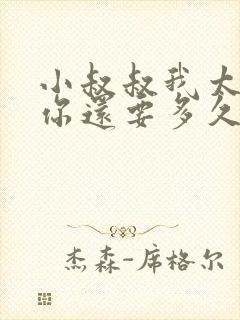 小叔叔我大
你還要多久
杰森-席格尔